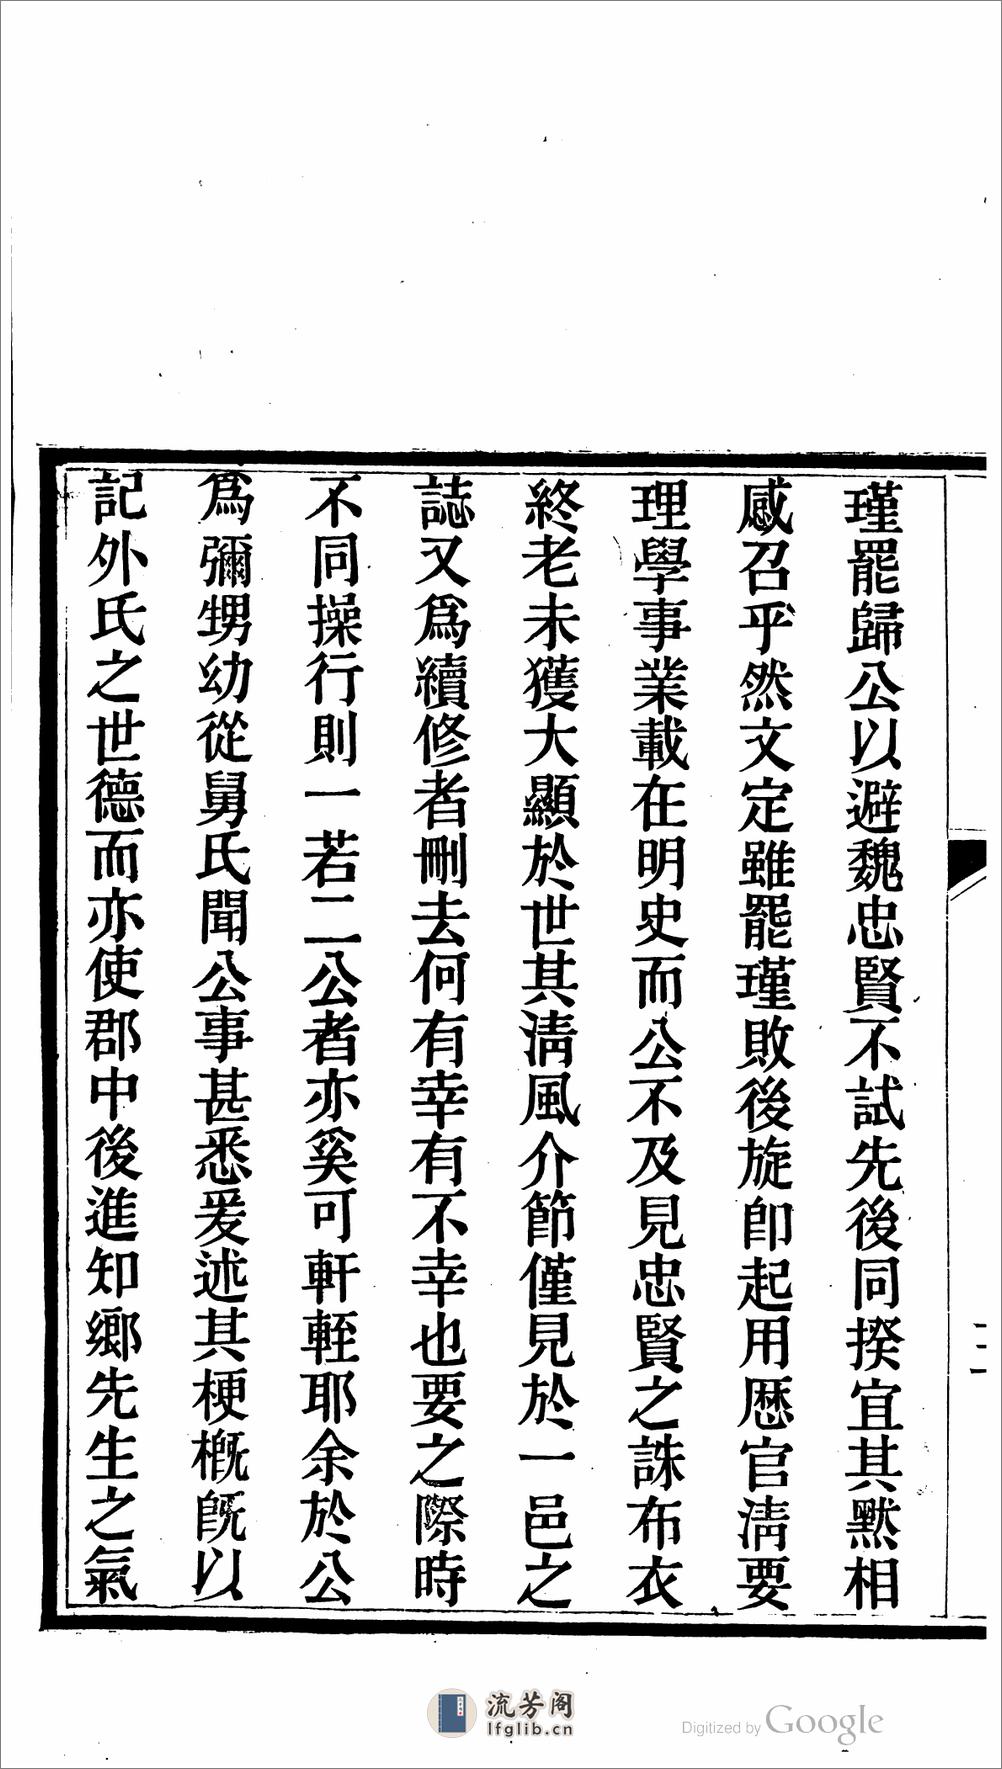 瑾罷歸公以避魏忠賢不試先後同揆宜其黙相
感召乎然文定雖罷瑾敗後旋卽起用歴官淸要
理學事業載在明史而公不及見忠賢之誅布衣
終老未獲大顯於世其淸風介節僅見於一邑之
誌又爲續修者刪去何有幸有不幸也要之際時
不同操行則一若二公者亦奚可軒輊耶余於公
爲彌甥幼從舅氏聞公事甚悉爰述其梗槪旣以
記外氏之世德而亦使郡中後進知鄉先生之氣
流芳阁
lfglib.cn
Digitized by Google